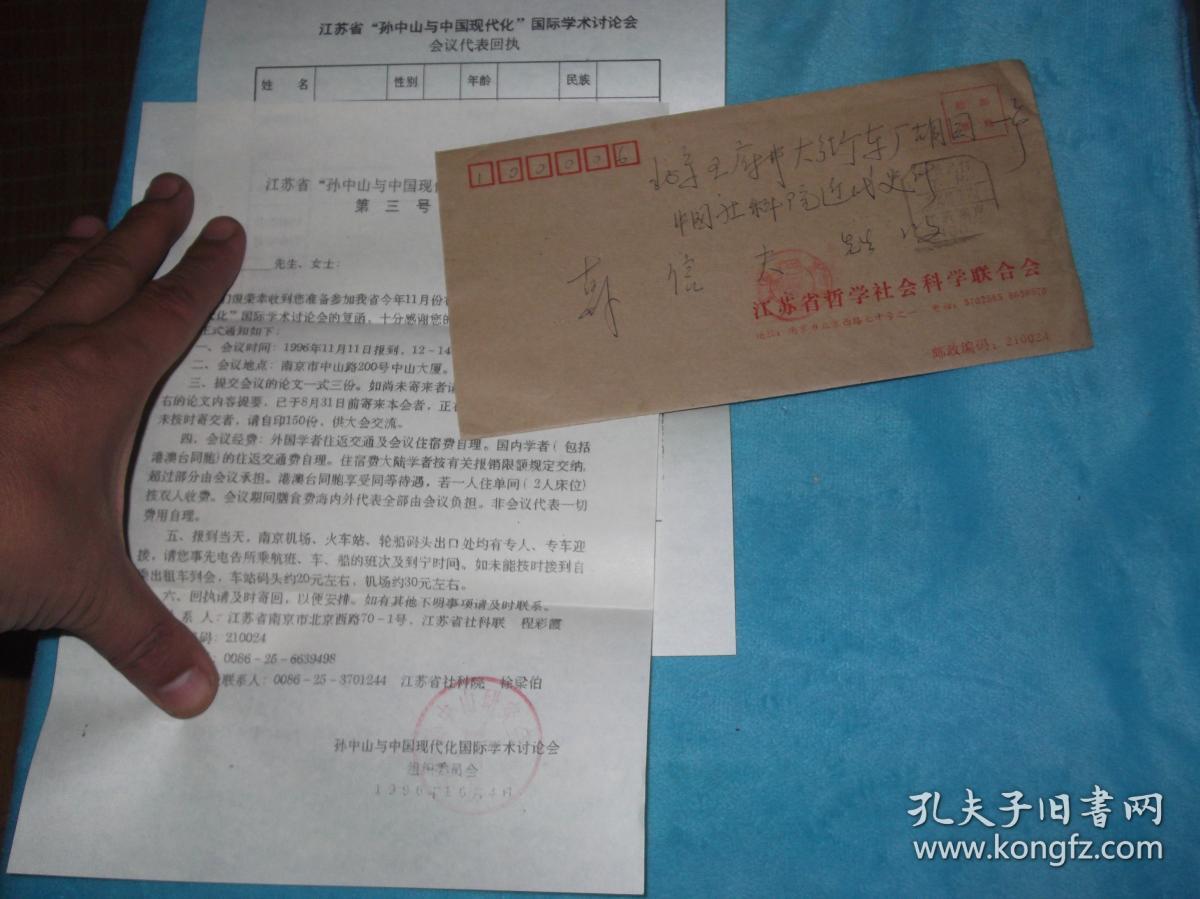 江苏省“孙中山与中国现代化”国际学术讨论会
会议代表回执
姓 名 性别 年龄 民族
江苏省“孙中山与中国现
第 三 号
先生、女士：
们很荣幸收到您准备参加我省今年11月份
化”国际学术讨论会的复函，十分感谢您
正式通知如下：
一、会议时间：1996年11月11日报到，12－14
二、会议地点：南京市中山路200号中山大厦。
三、提交会议的论文一式三份。如尚未寄来者
右的论文内容提要，已于8月31日前寄来本会者，正
未按时寄交者，请自印150份，供大会交流。
四、会议经费：外国学者往返交通及会议住宿费自理。国内学者（包括
港澳台同胞)的往返交通费自理。住宿费大陆学者按有关报销限额规定交纳，
超过部分由会议承担。港澳台同胞享受同等待遇，若一人住单间（2人床位)
按双人收费。会议期间膳食费海内外代表全部由会议负担。非会议代表一切
费用自理。
五、报到当天，南京机场、火车站、轮船码头出口处均有专人、专车迎
接，请您事先电告所乘航班、车、船的班次及到宁时间。如未能按时接到自
乘出租车到会，车站码头约20元左右，机场约30元左右。
六、回执请及时寄回，以便安排。如有其他不明事项请及时联系。
系 人：江苏省南京市北京西路70－1号，江苏省社科联 程彩霞
码：210024
：0086－25－6639498
联系人：0086－25－3701244 江苏省社科院 徐梁伯
孙中山与中国现代化国际学术讨论会
组织委员会
100006
北京王府井大街东厂胡同一号
中国社科院近代史所
韩信夫 先生 收
江苏省哲学社会科学联合会
地址：南京市北京西路七十号之一 电话：
邮政编码：210024
孔夫子旧书网
www.kongfz.com